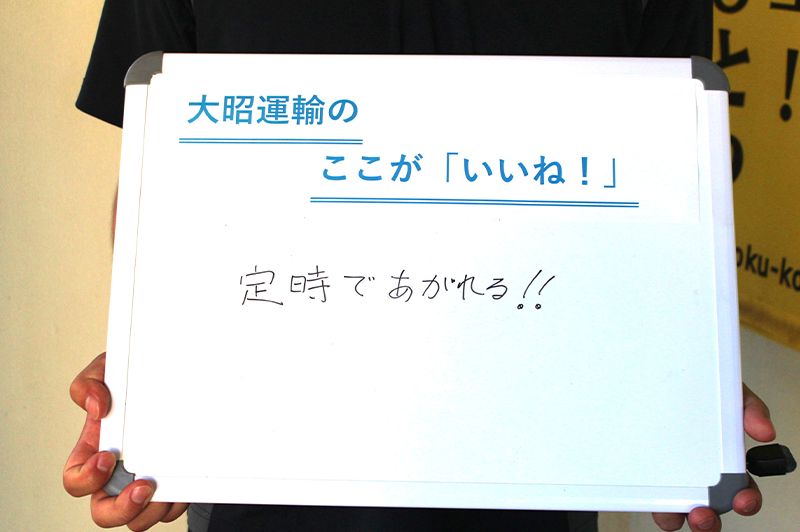 大昭運輸の
ここが「いいね！」
定時であがれる!!
と！
oku-ko